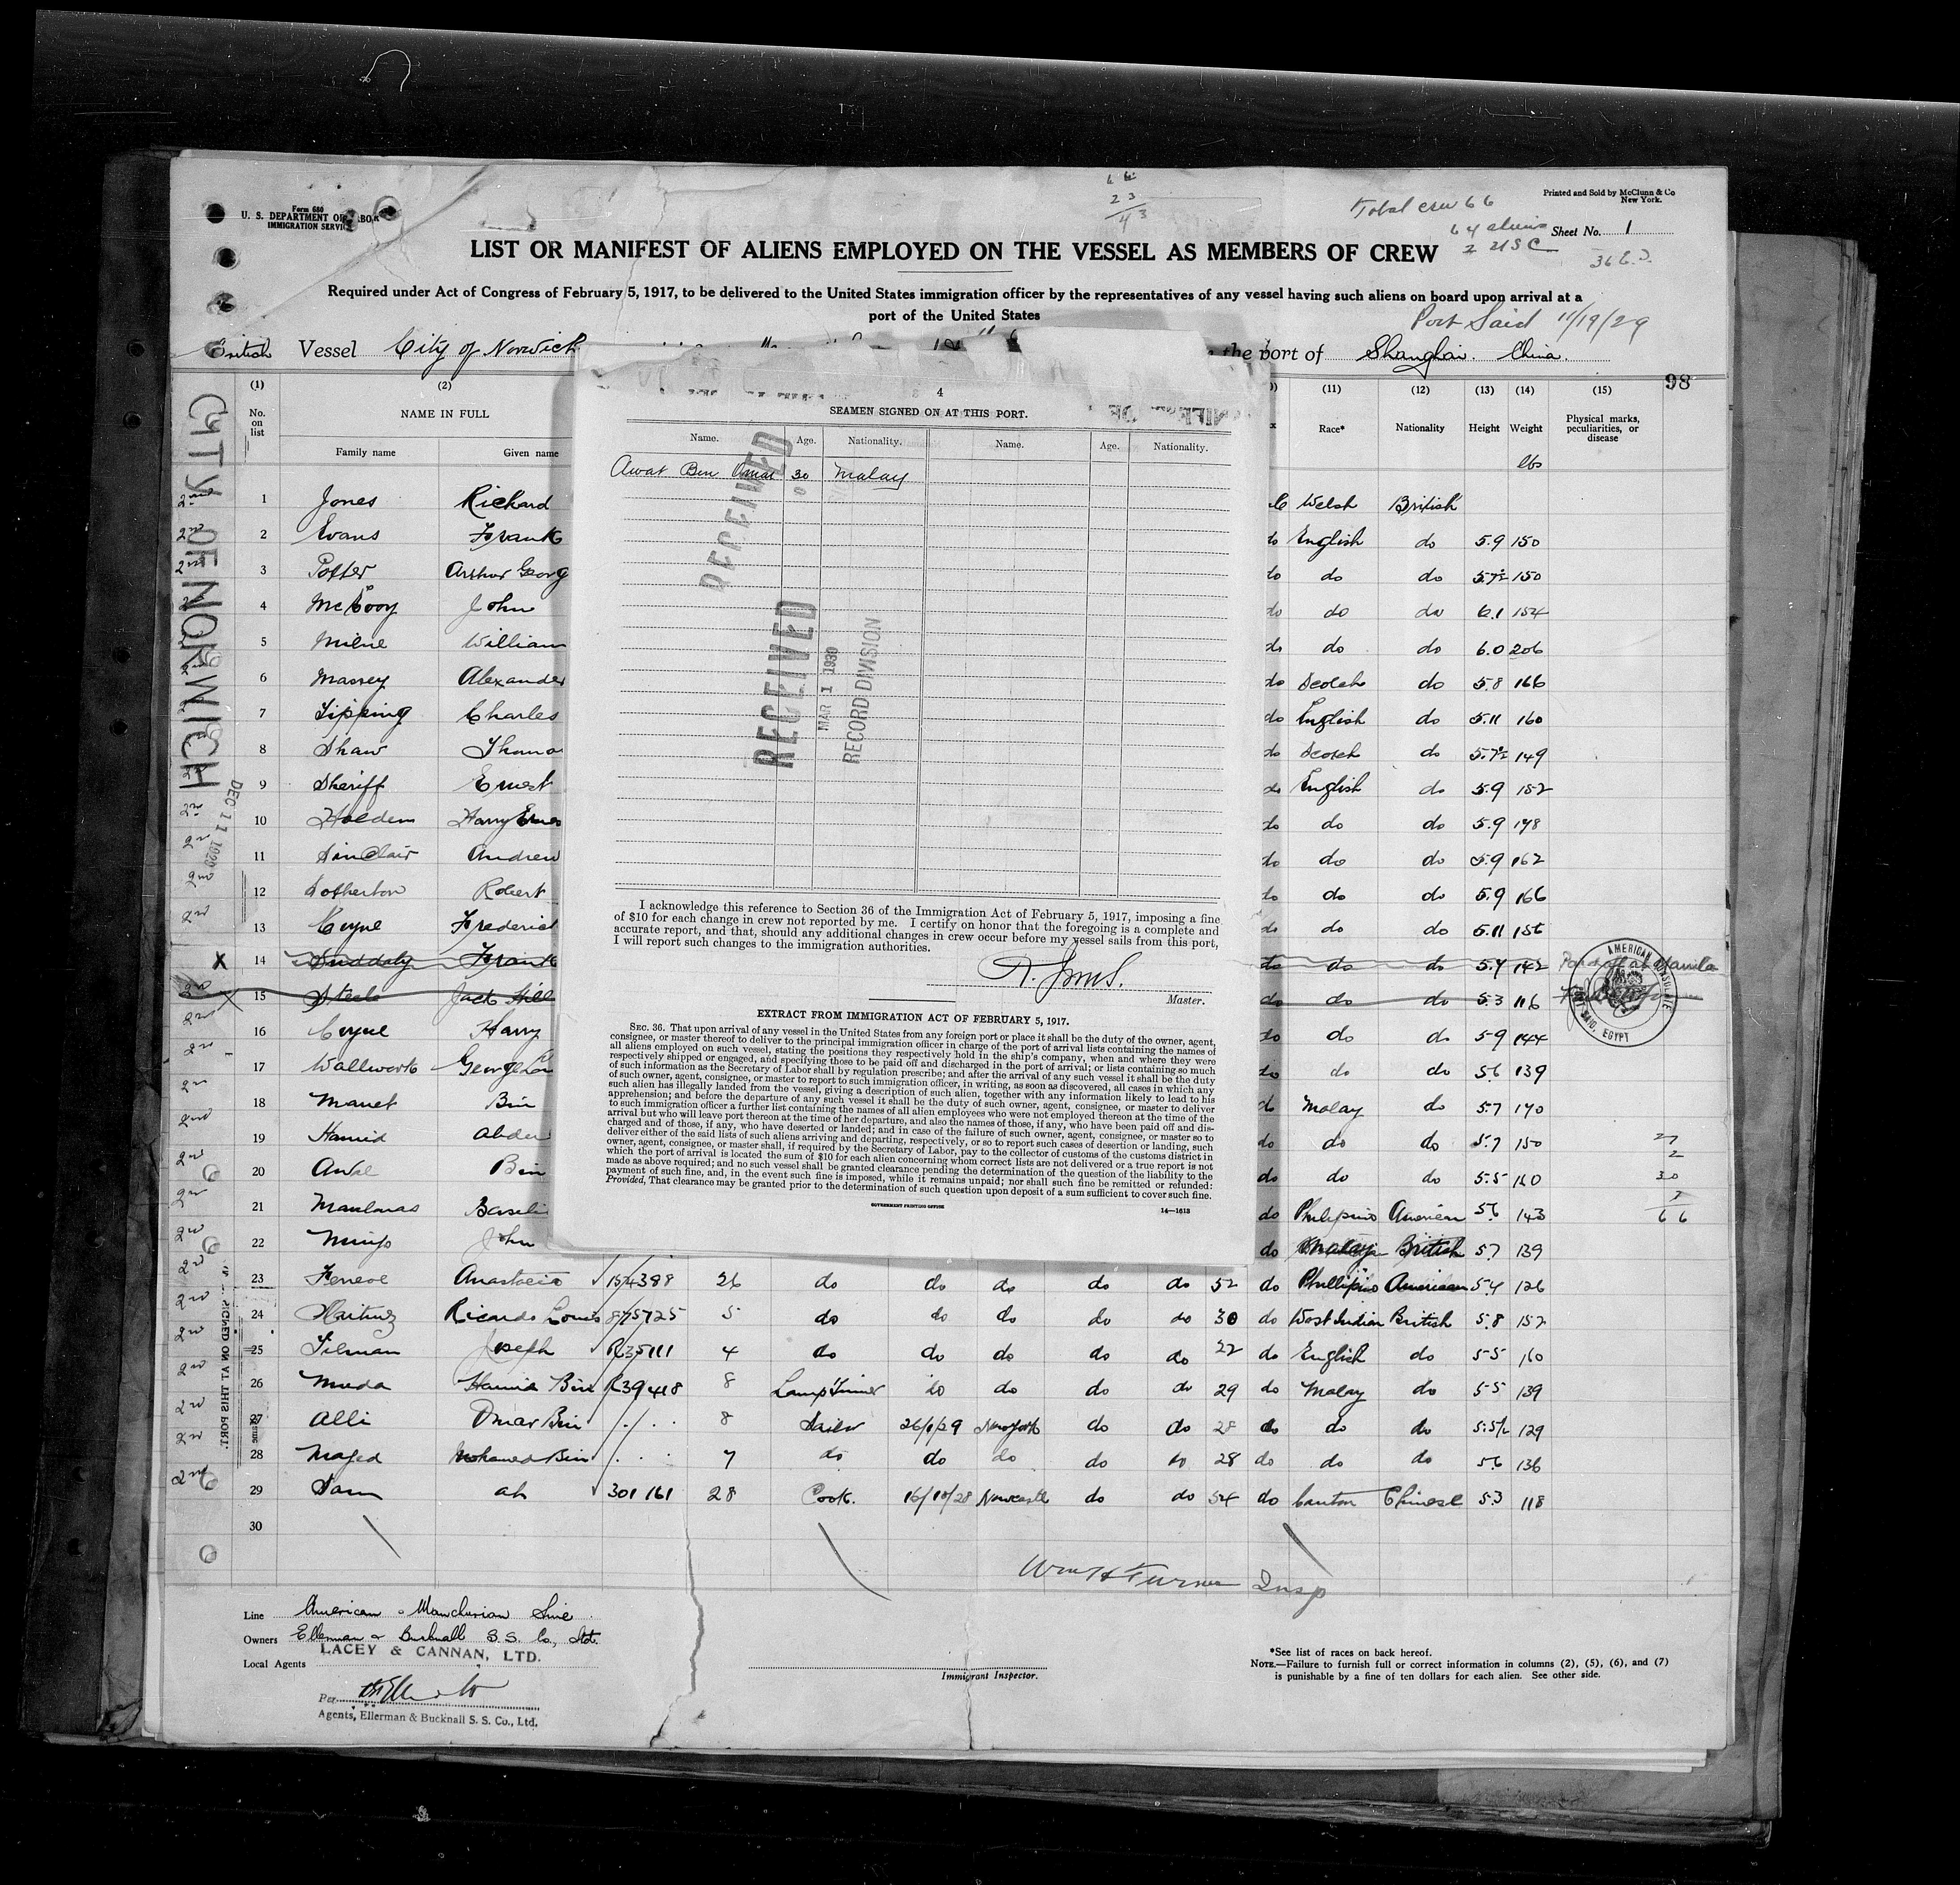 Form 680
U. S. DEPARTMENT OF LABOR
IMMIGRATION SERVICE
Printed and Sold by McClunn & Co
New York.
66
23
43
Total crew 66
64 aliens
2 USC
Sheet No. 1
LIST OR MANIFEST OF ALIENS EMPLOYED ON THE VESSEL AS MEMBERS OF CREW
Required under Act of Congress of February 5, 1917, to be delivered to the United States immigration officer by the representatives of any vessel having such aliens on board upon arrival at a
port of the United States
Port Said 11/19/29
British Vessel City of Norwich the port of Shanghai. China.
98
CITY OF NORWICH
DEC 11 1929
(1) (2) (11) (12) (13) (14) (15)
No. on list NAME IN FULL Race* Nationality Height Weight Physical marks, peculiarities, or disease
Family name Given name
lbs
1 Jones Richard Welsh British
2 Evans Frank do English do 5.9 150
3 Potter Arthur Georg do do do 5.7½ 150
4 John do do do 6.1 154
5 Milne William do do do 6.0 206
6 Massey Alexander do Scotch do 5.8 166
7 Tipping Charles do English do 5.11 160
8 Shaw Thoma do Scotch do 5.7½ 149
9 Sheriff Ernest do English do 5.9 152
10 Holden Harry Ernes do do do 5.9 178
11 Sinclair Andrew do do do 5.9 162
12 Sotherton Robert do do do 5.9 166
13 Coyne Frederick do do do 5.11 156
X 14 Suddaly Frank do do do 5.4 142 Paid off at Manila
15 Steele Jack Hill do do do 5.3 116
16 Coyne Harry do do do 5.9 144
17 Wallwork George do do do 5.6 139
18 Manet Bin do Malay do 5.7 140
19 Hamid Abdu do do do 5.7 150
20 Bin do do do 5.5 150
21 do Philipino American 5.6 143
22 John do Malay British 5.7 139
23 Anastacio 154388 26 do do do do do 52 do Phillipino American 5.4 126
24 Ricardo Louis 875725 5 do do do do do 30 do West Indian British 5.8 152
25 Tilman Joseph R35111 4 do do do do do 22 do English do 5.5 160
26 Muda Hamid Bin R39418 8 Lamp Trimmer do do do do 29 do Malay do 5.5 139
27 Alli Omar Bin 8 Sailor 26/9/29 New York do do 28 do do do 5.5½ 129
28 Majed Mohamed Bin 7 do do do do do 28 do do do 5.6 136
29 Sam ah 301161 28 Cook. 16/10/28 Newcastle do do 54 do Canton Chinese 5.3 118
30
AMERICAN CONSULATE
PORT SAID, EGYPT
30
66
SIGNED ON AT THIS PORT.
4
SEAMEN SIGNED ON AT THIS PORT.
Name. Age. Nationality. Name. Age. Nationality.
Awat Ben Omar 30 Malay
RECEIVED
RECEIVED
MAR 1 1930
RECORD DIVISION
I acknowledge this reference to Section 36 of the Immigration Act of February 5, 1917, imposing a fine
of $10 for each change in crew not reported by me. I certify on honor that the foregoing is a complete and
accurate report, and that, should any additional changes in crew occur before my vessel sails from this port,
I will report such changes to the immigration authorities.
R. Jones.
Master.
EXTRACT FROM IMMIGRATION ACT OF FEBRUARY 5, 1917.
SEC. 36. That upon arrival of any vessel in the United States from any foreign port or place it shall be the duty of the owner, agent,
consignee, or master thereof to deliver to the principal immigration officer in charge of the port of arrival lists containing the names of
all aliens employed on such vessel, stating the positions they respectively hold in the ship's company, when and where they were
respectively shipped or engaged, and specifying those to be paid off and discharged in the port of arrival; or lists containing so much
of such information as the Secretary of Labor shall by regulation prescribe; and after the arrival of any such vessel it shall be the duty
of such owner, agent, consignee, or master to report to such immigration officer, in writing, as soon as discovered, all cases in which any
such alien has illegally landed from the vessel, giving a description of such alien, together with any information likely to lead to his
apprehension; and before the departure of any such vessel it shall be the duty of such owner, agent, consignee, or master to deliver
to such immigration officer a further list containing the names of all alien employees who were not employed thereon at the time of the
arrival but who will leave port thereon at the time of her departure, and also the names of those, if any, who have been paid off and dis-
charged and of those, if any, who have deserted or landed; and in case of the failure of such owner, agent, consignee, or master so to
deliver either of the said lists of such aliens arriving and departing, respectively, or so to report such cases of desertion or landing, such
owner, agent, consignee, or master shall, if required by the Secretary of Labor, pay to the collector of customs of the customs district in
which the port of arrival is located the sum of $10 for each alien concerning whom correct lists are not delivered or a true report is not
made as above required; and no such vessel shall be granted clearance pending the determination of the question of the liability to the
payment of such fine, and, in the event such fine is imposed, while it remains unpaid; nor shall such fine be remitted or refunded:
Provided, That clearance may be granted prior to the determination of such question upon deposit of a sum sufficient to cover such fine.
GOVERNMENT PRINTING OFFICE 14—1613
Wm H Turner Insp
Line American & Manchurian Line
Owners Ellerman & Bucknall S.S. Co., Ltd.
Local Agents LACEY & CANNAN, LTD.
Per
Agents, Ellerman & Bucknall S. S. Co., Ltd.
Immigrant Inspector.
*See list of races on back hereof.
NOTE.—Failure to furnish full or correct information in columns (2), (5), (6), and (7)
is punishable by a fine of ten dollars for each alien. See other side.